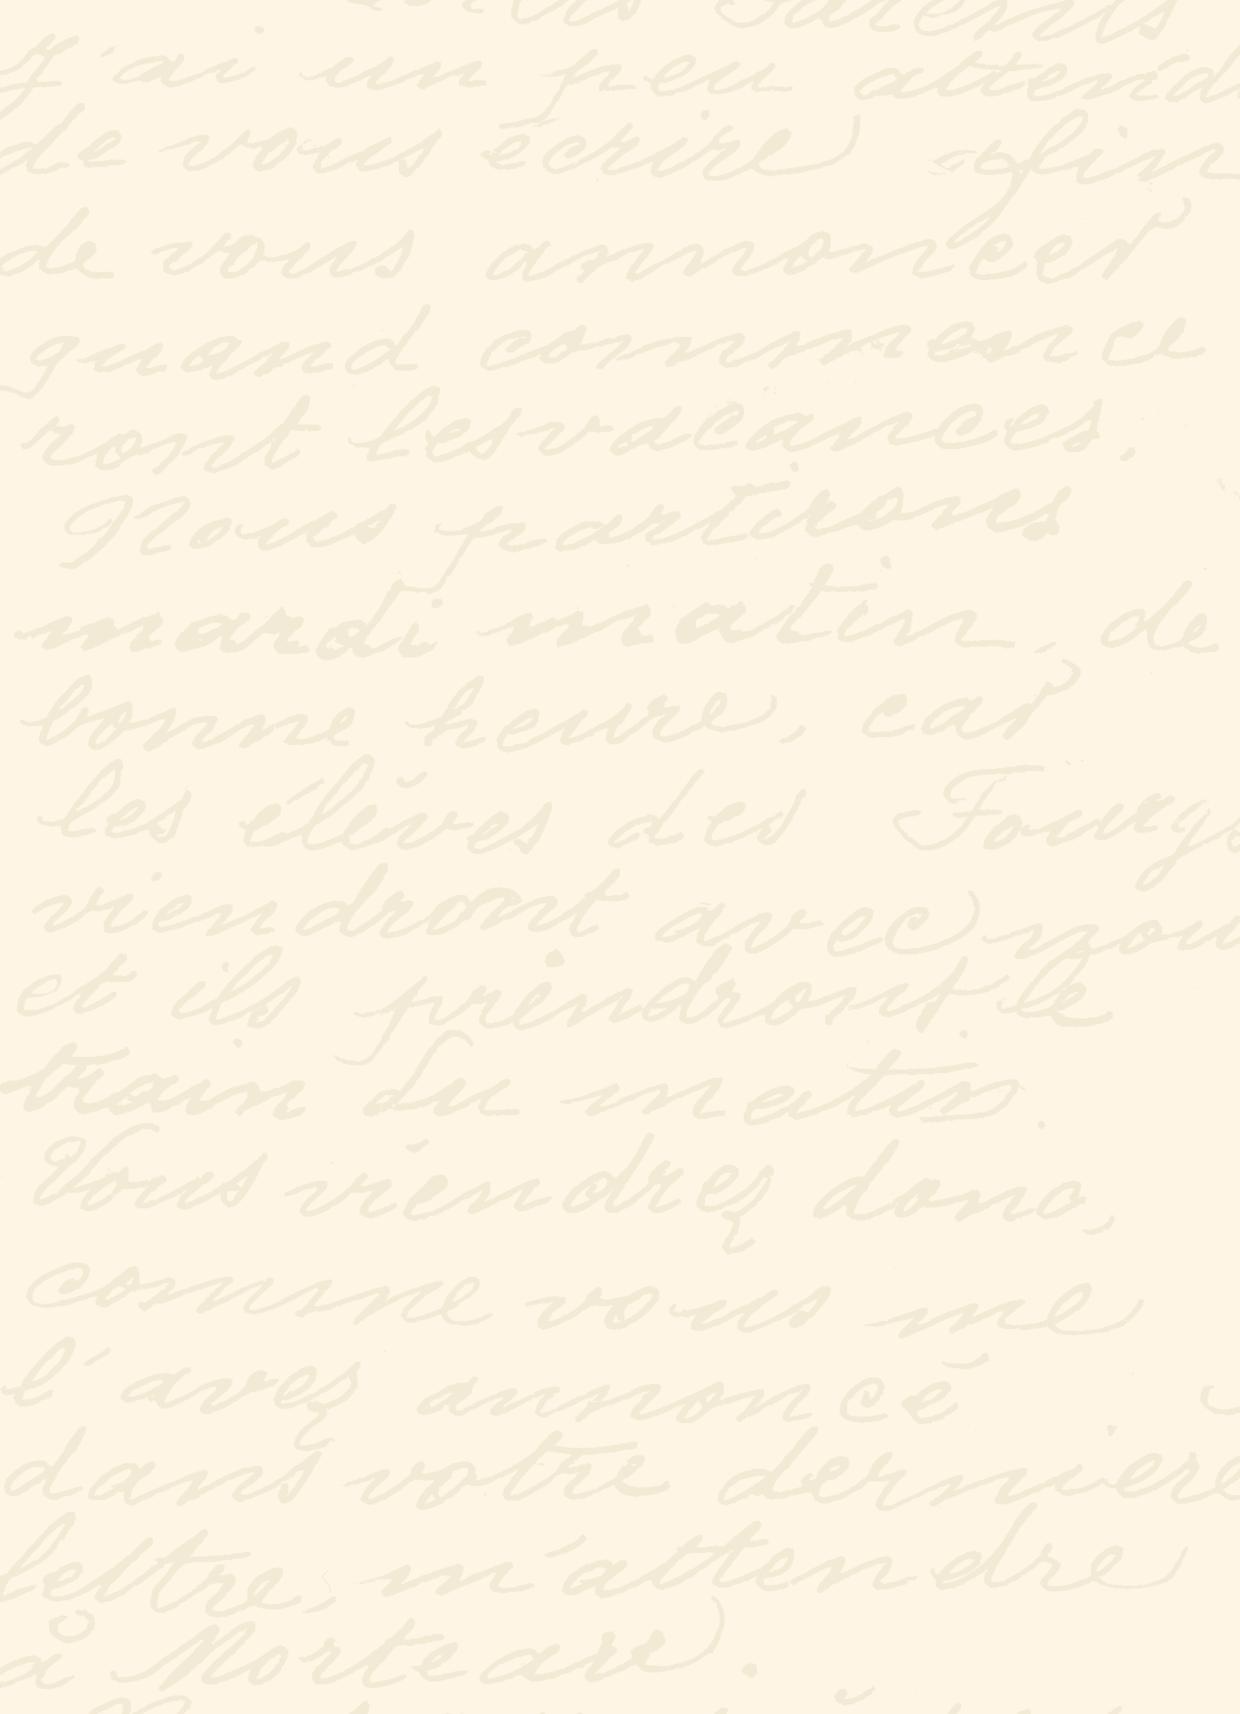 Parents
J'ai un peu attend
de vous écrire afin
de vous annoncer
quand commence
ront les vacances.
Nous partirons
mardi matin, de
bonne heure, car
les élèves des Fourgs
viendront avec nou
et ils prendront le
train du matin.
Vous viendrez donc,
comme vous me
l'avez annoncé
dans votre derniere
lettre, m'attendre
à Morteau.